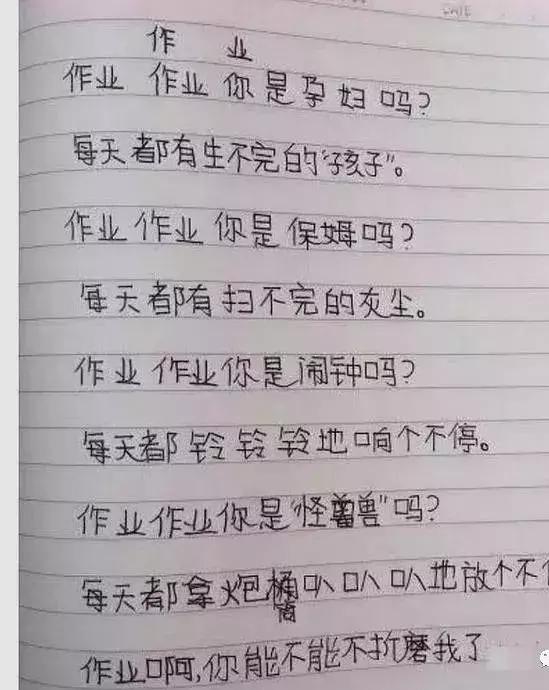 作 业
作业 作业 你是孕妇吗?
每天都有生不完的“孩子”。
作业 作业 你是保姆吗?
每天都有扫不完的灰尘。
作业 作业你是闹钟吗?
每天都铃铃铃地响个不停。
作业作业你是“怪兽”吗?
每天都拿炮筒叭叭叭地放个不
作业啊,你能不能不折磨我了